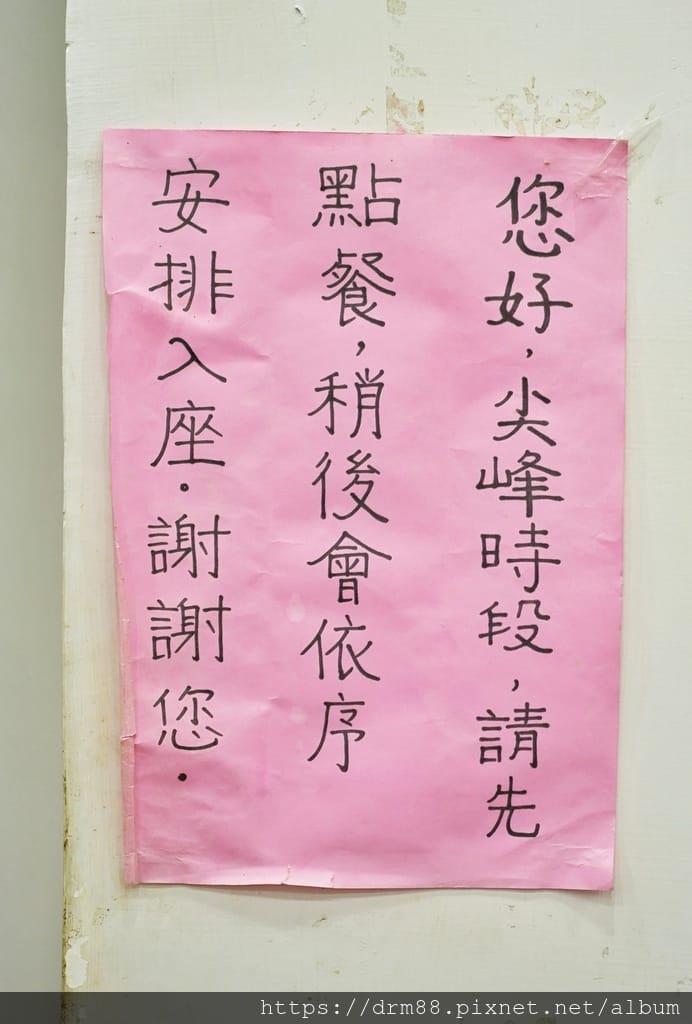 您好，尖峰時段，請先
點餐，稍後會依序
安排入座。謝謝您．
https://drm88.pixnet.net/album